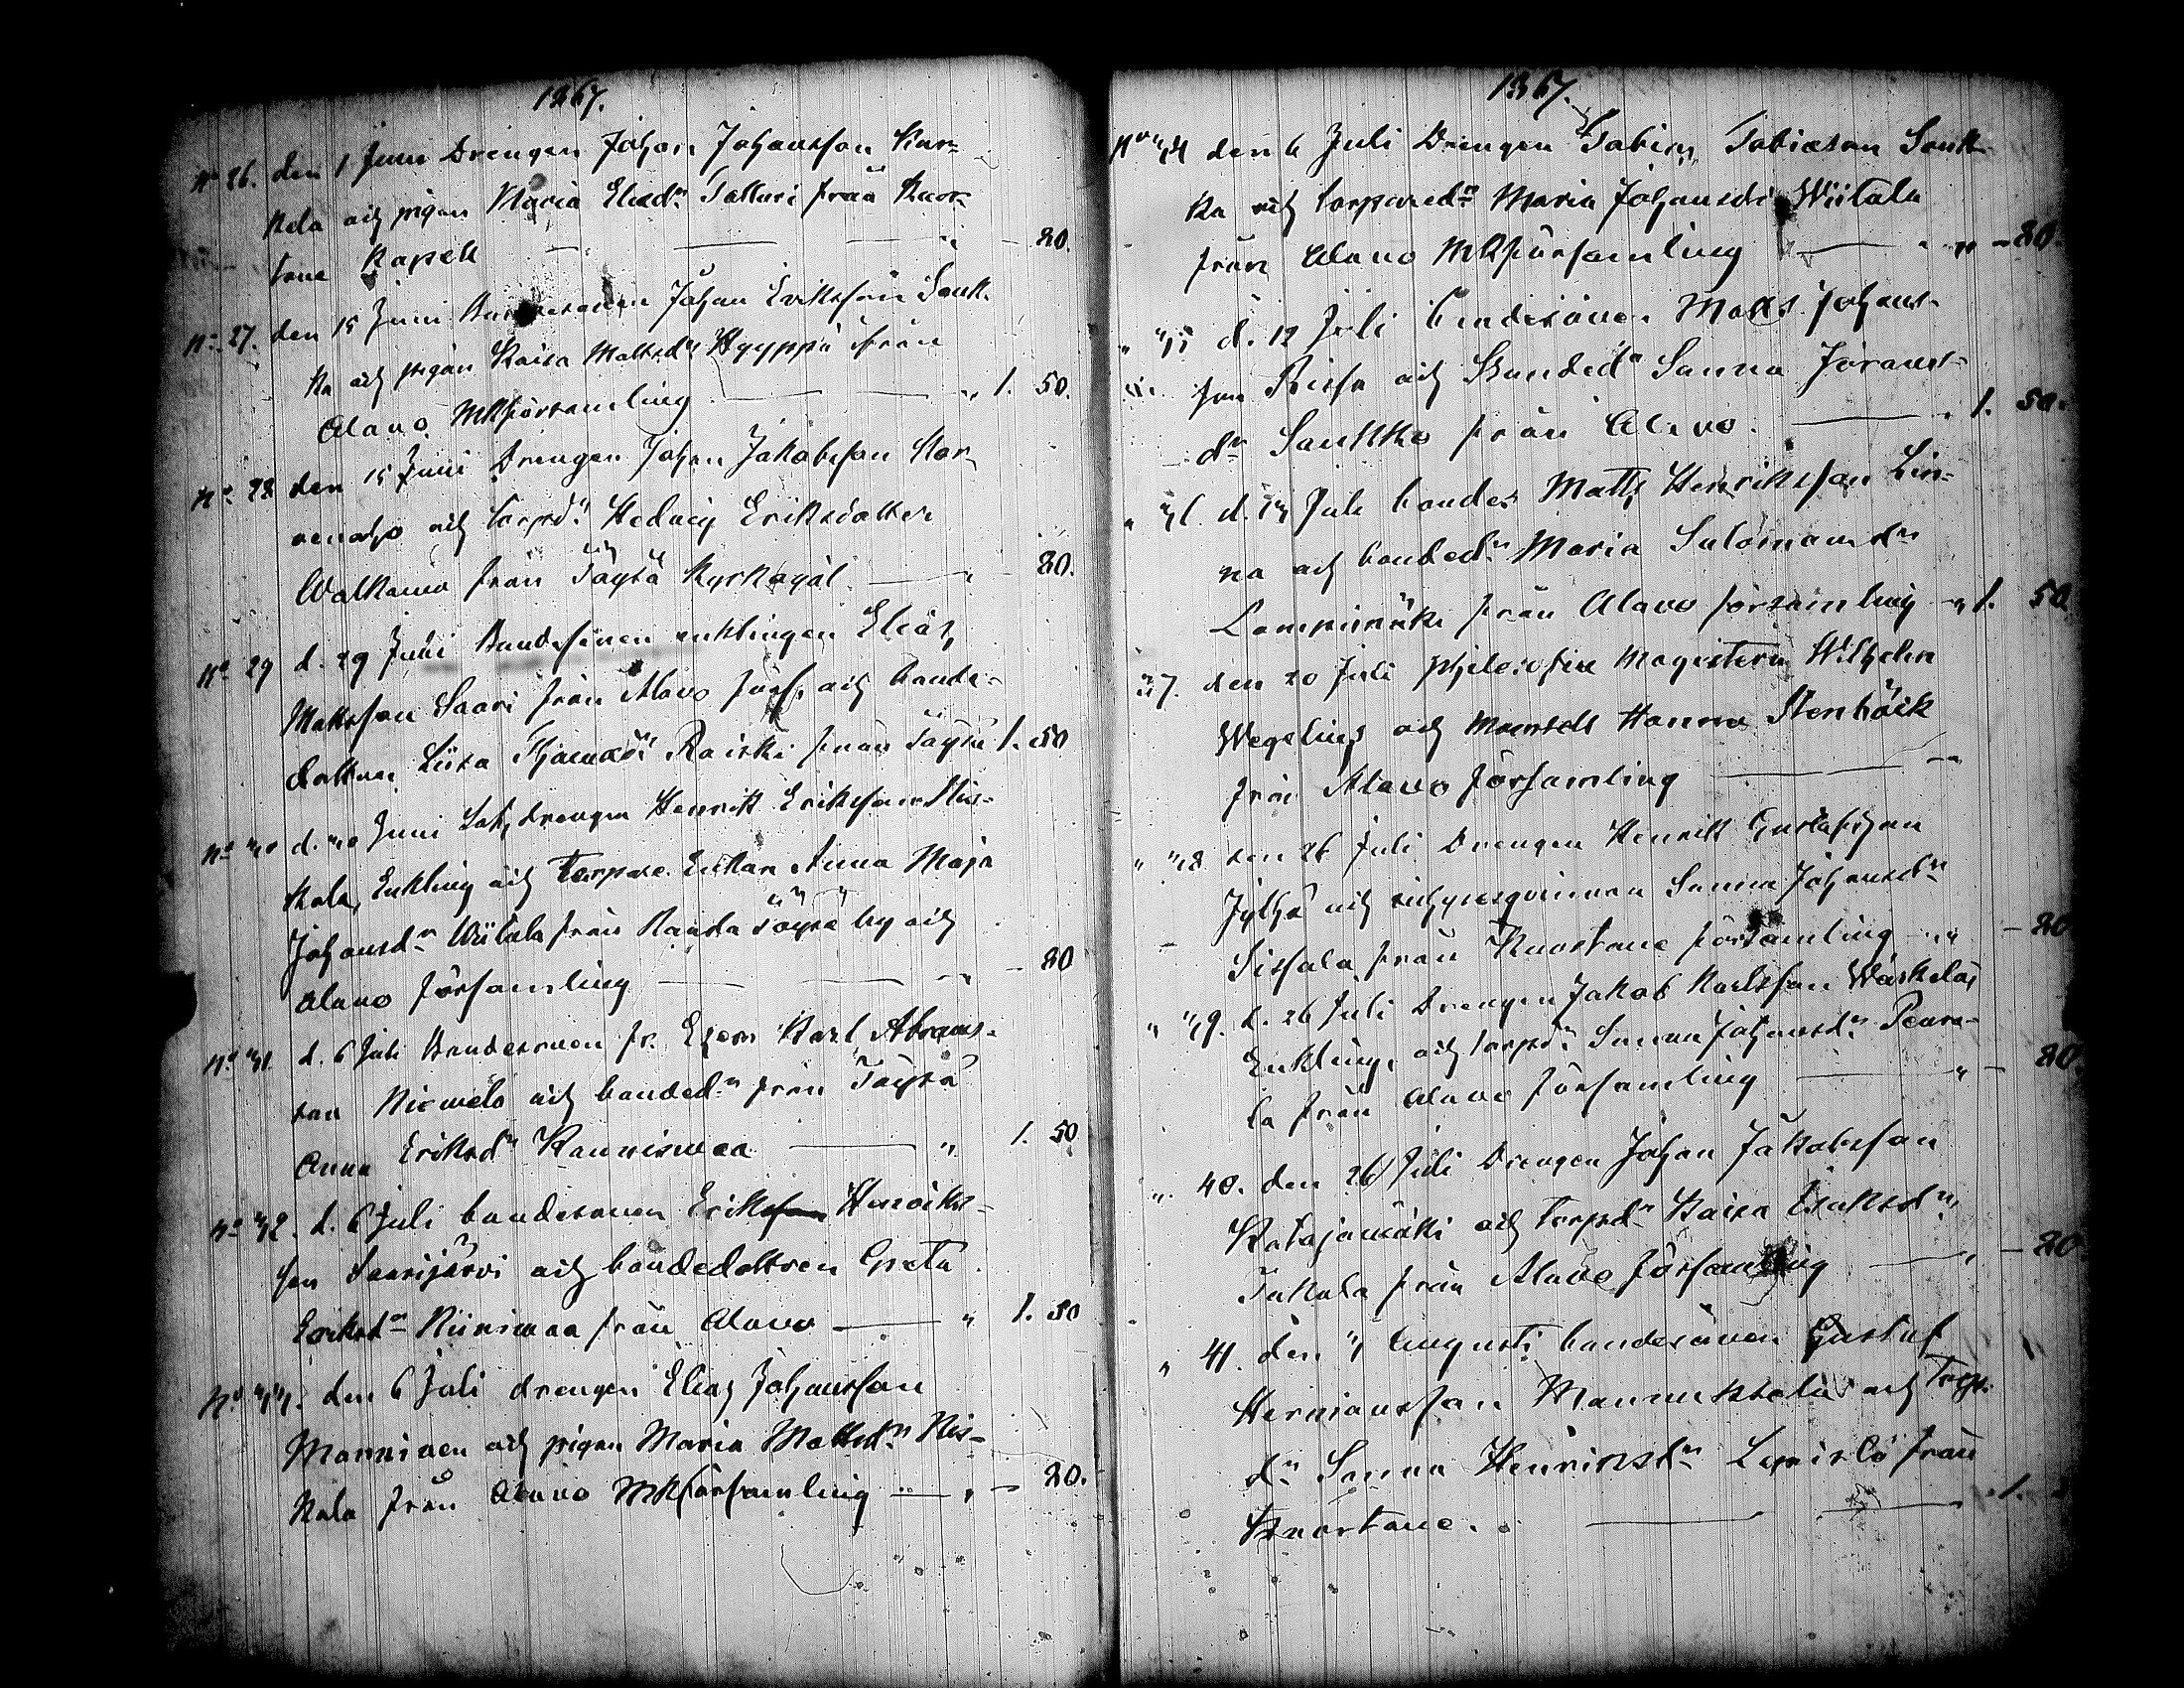 1867.
No 26. den 1 Juni Drengen Johan Johansson Kar-
kela och pigan Maria Eliedr Talluri från Kuor-
tane Kapell — — — „ — 80.
No 27. den 15 Juni Bondesonen Johan Eriksson Sauk-
ka och pigan Kaisa Mattsdr Hyyppä från
Alavo Mkförsamling — — „ 1. 50.
No 28 den 15 Juni Drengen Johan Jakobsson Kor-
och torpdr Hedvig Eriksdotter
Walkama från Töysä Kyrkogäl — „ 80.
No 29 d. 29 Juni Bondesonen enklingen Elias
Mattsson Saari från Alavo förs. och bonde-
dottren Liisa Raiski från Töysä 1. 50
No 30 d. 30 Juni drengen Henrik Eriksson Kis-
kola, Enkling och Torpare Enkan Anna Maja
Johansdr Wiitala från Randa Töysä by och
Alavo församling — — „ — 80
No 31 d. 6 Juli Bondesonen fr. Karl Abrams-
son Niemelä och bondedr från Töysä
Anna Eriksdr Kaunismaa — „ 1. 50
No 32. d. 6 Juli bondesonen Erik Henriks-
son Saarijärvi och bondedottren Greta
Eriksdr Niinimaa från Alavo — „ 1. 50
No 33. den 6 Juli drengen Elias Johansson
Manninen och pigan Maria Mattsdr Kis-
kola från Alavo Mkförsamling — „ — 80.
1867.
No 34 den 6 Juli Drengen Tobias Tobiasson Sauk-
ka och torparedr Maria Johansdr Wiitala
från Alavo Mkförsamling — „ — 80.
„ 35 d. 12 Juli bondesonen Matts Johans-
son Rissa och Bondedr Sanna Johans-
dr Saukko från Alavo. — „ 1. 50.
„ 36. d. 14 Juli bondes. Matts Henriksson Lin-
na och bondedr Maria Salomonsdr
Lampimäki från Alavo församling — „ 1. 50
37. den 20 Juli philosofie Magistern Wilhelm
Wegelius och Mamsell Hanna Stenbäck
från Alavo församling — — —
„ 38 den 26 Juli Drengen Henrik Gustafsson
Jylhä och Sanna Johansdr
Sissala från Kuortane församling — „ — 80
„ 39. d. 26 Juli Drengen Jakob Karlsson Waskelas
Enkling, och torpdr Sanna Johansdr Peura-
la från Alavo församling — „ — 80.
„ 40. den 26 Juli Drengen Johan Jakobsson
Katajamäki och torpdr Kaisa Isaksdr
Takala från Alavo församling — „ — 80
„ 41. den 3 Augusti bondesonen Gustaf
Hermansson Mannuksela och Torp.
dr Sanna Henriksdr från
Kuortane. — — „ 1.